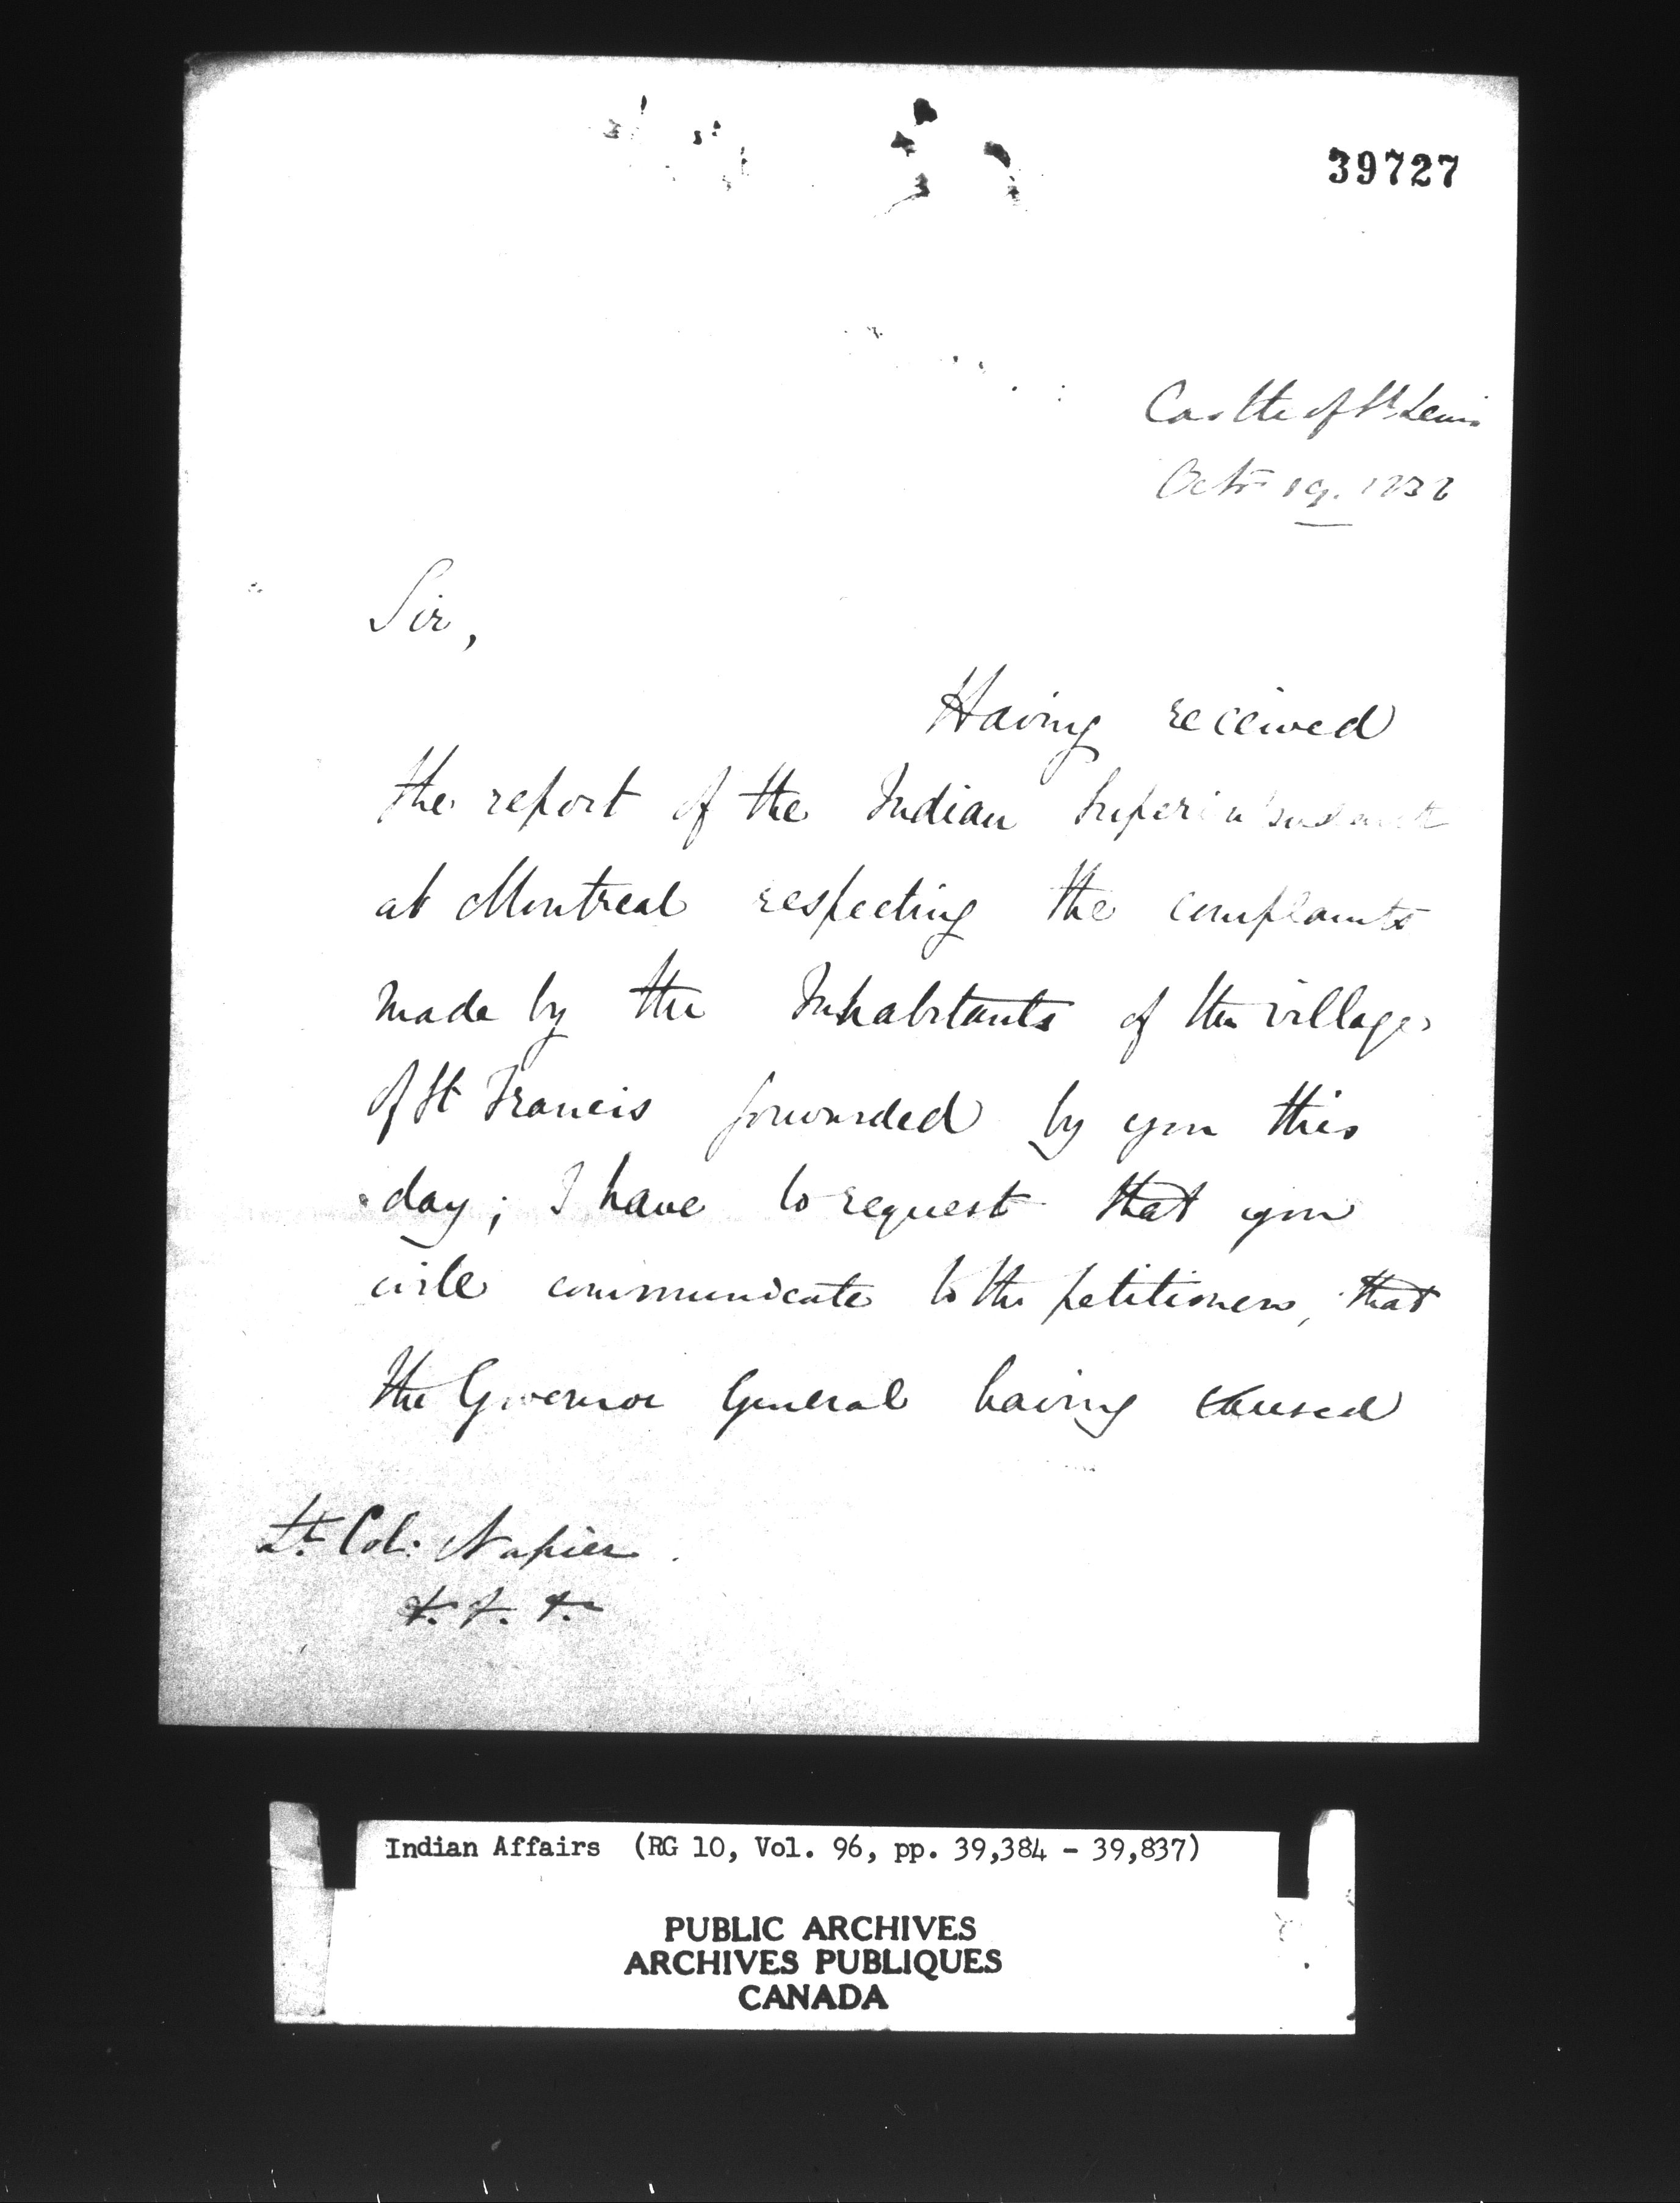 39727
Castle of St Lewis
Octr 19. 1832
Sir,
Having received
the report of the Indian Superintendent
at Montreal respecting the complaints
made by the Inhabitants of the village
of St Francis forwarded by you this
day; I have to request that you
will communicate to the petitioners, that
the Governor General having caused
Lt. Col: Napier.
&. &. &.
Indian Affairs (RG 10, Vol. 96, pp. 39,384 - 39,837)
PUBLIC ARCHIVES
ARCHIVES PUBLIQUES
CANADA